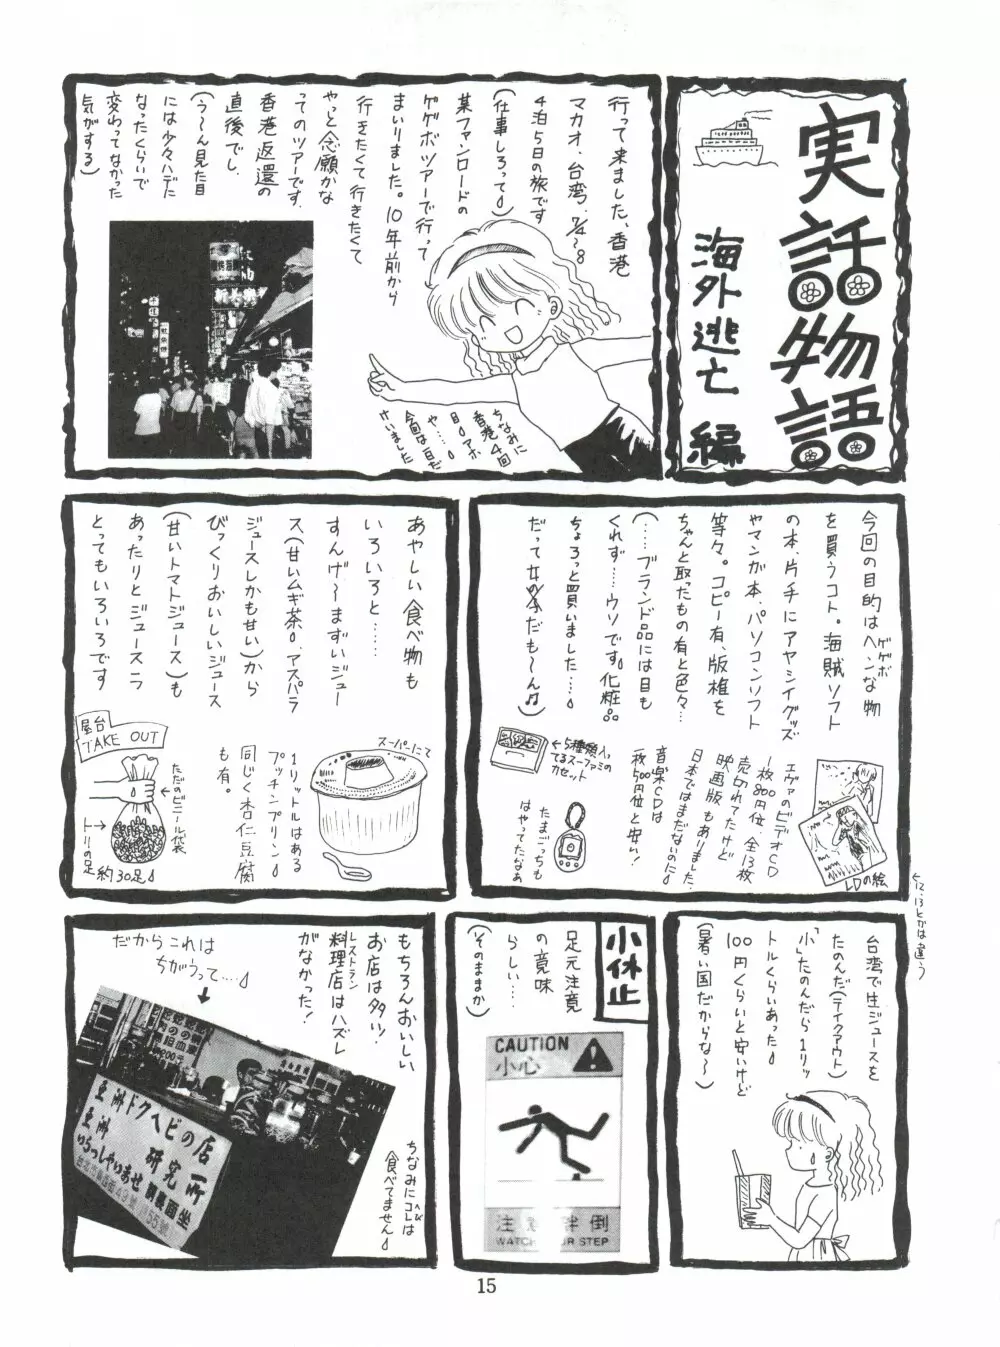 実話物語
海外逃亡編
行って来ました、香港
マカオ、台湾、7/4〜8
4泊5日の旅です
(仕事しろって)
某ファンロードの
ゲゲボツアーで行って
まいりました。10年前から
行きたくて行きたくて
やっと念願かな
ってのツアーです。
香港返還の
直後でし、
(う〜ん見た目
には少々ハデに
なったくらいで
変わってなかった
気がする)
ちなみに
香港4回
目のアホ
や…。
今回は目だ
けいました
今回の目的はヘンな物
ゲゲボ
を買うコト。海賊ソフト
の本、片手にアヤシイグッズ
やマンガ本、パソコンソフト
等々。コピー有、版権を
ちゃんと取ったもの有と色々…
(……ブランド品には目も
くれず……ウソです。化粧品
ちょろっと買いました…。
だって女の子だもーん♫)
エヴァのビデオCD
1枚800円位、全13枚
売切れてたけど
映画版もありました。
日本ではまだないのに
音楽CDは
一枚500円位と安い!
LDの絵
←12.13とかは違う
←5種類入
てるスーファミの
カセット
たまごっちも
はやってたなぁ
あやしい食べ物も
いろいろと……
すんげ〜まずいジュー
ス(甘いムギ茶。アスパラ
ジュースしかも甘い)から
びっくりおいしいジュース
(甘いトマトジュース)も
あったりとジュース一ラ
とってもいろいろです
屋台
TAKE OUT
←ただのビニール袋
トリの足→
約30足
スーパーにて
1リットルはある
プッチンプリン
同じく杏仁豆腐
も有。
台湾で生ジュースを
たのんだ(テイクアウト)
「小」たのんだら1リッ
トルくらいあった
100円くらいと安いけど
(暑い国だからな〜)
小休止
足元注意
の意味
らしい…
(そのままか)
CAUTION
小心
注意絆倒
WATCH YOUR STEP
もちろんおいしい
お店は多い!
レストラン
料理店はハズレ
がなかった!
だからこれは
ちがうって…
亜洲ドクヘビの店
亜洲研究所
いらっしゃいませ
ちなみにコレは
へび
食べてません
15